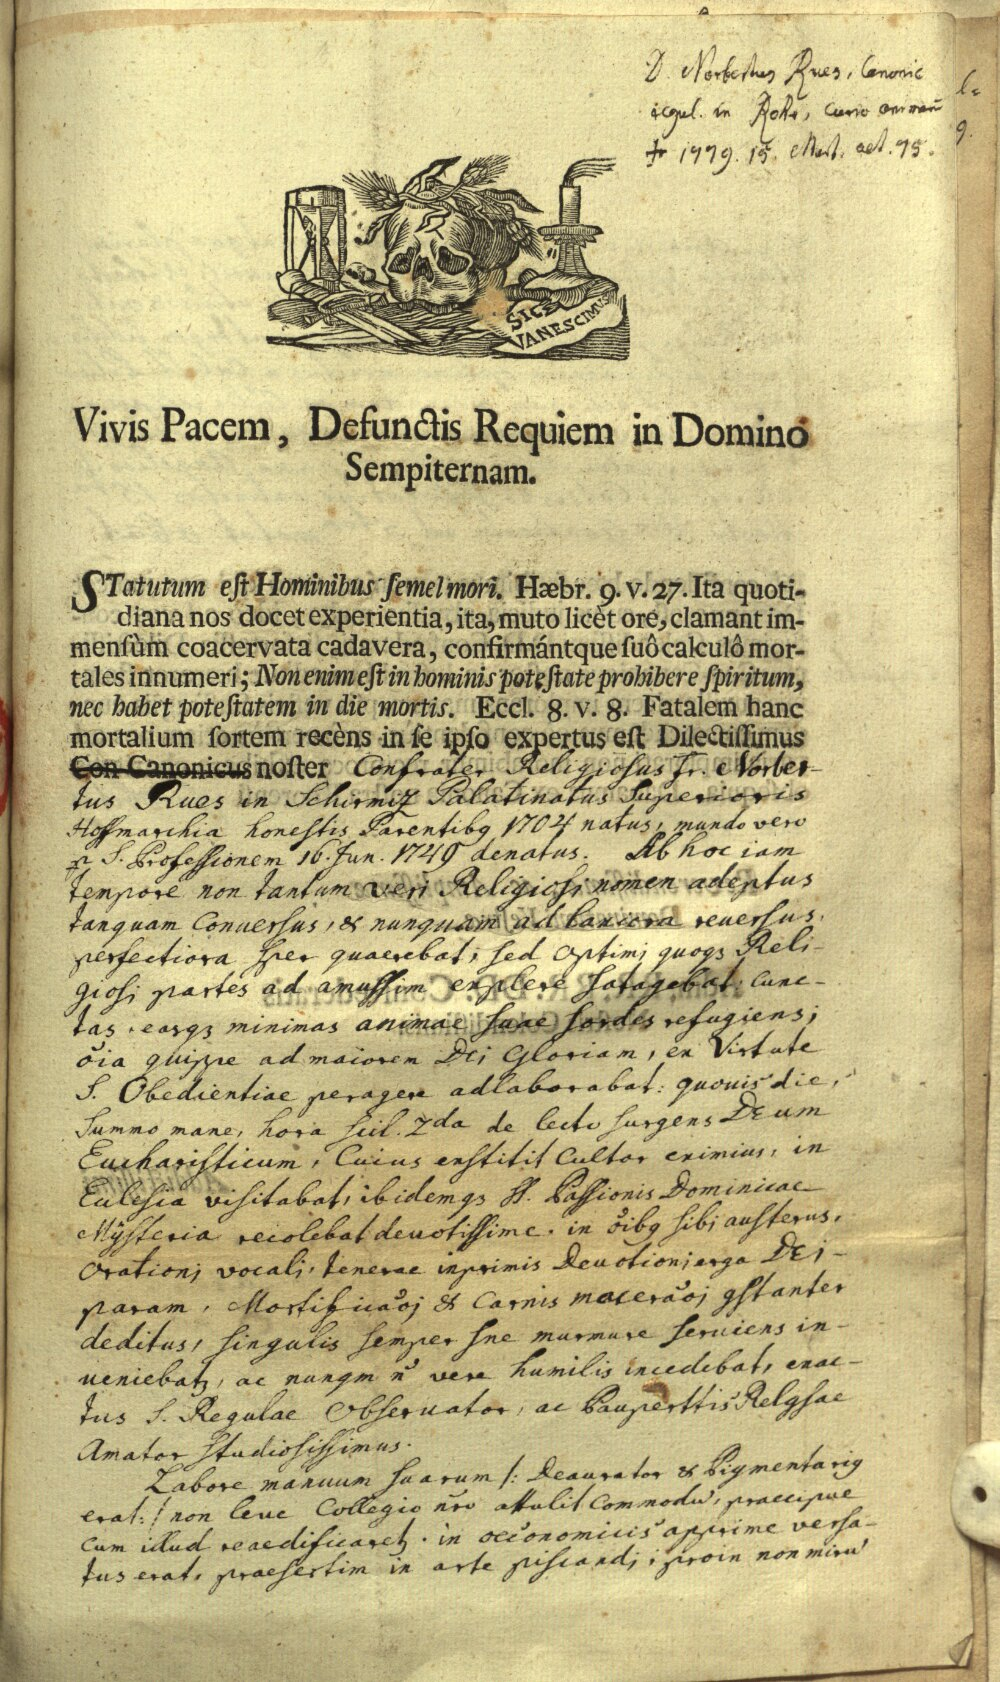 D. Norbertus Rues, Canonic
regul. in Rohr,
† 1779. 15. Mart. aet. 75.
SIC EVANESCIMUS
Vivis Pacem, Defunctis Requiem in Domino
Sempiternam.
STatutum eſt Hominibus ſemel mori. Hæbr. 9. v. 27. Ita quoti-
diana nos docet experientia, ita, muto licèt ore, clamant im-
menſùm coacervata cadavera, confirmántque ſuô calculô mor-
tales innumeri; Non enim eſt in hominis poteſtate prohibere ſpiritum,
nec habet poteſtatem in die mortis. Eccl. 8. v. 8. Fatalem hanc
mortalium ſortem recèns in ſe ipſo expertus eſt Dilectiſſimus
Con-Canonicus noſter Confrater Religiosus fr. Norber-
tus Rues in Schirmiz Palatinatus Superioris
Hoffmarchia honestis Parentibq 1704 natus, mundo vero
S. Professionem 16. Jun. 1740 denatus. Ab hoc iam
tempore non tantum veri Religiosi nomen adeptus
tanquam Conversus, & nunquam ad reuersus.
perfectiora sper quaerebat, sed optimj quoqз Reli-
giosi partes ad amussim explere satagebat, cunc-
tas, easqз minimas animae suae sordes refugiens;
oia quippe ad maiorem DEi Gloriam, ex Virtute
S. Obedientiae peragere adlaborabat: quouis die,
summo mane, hora scil. 2da de lecto surgens DEum
Eucharisticum, Cuius exstitit Cultor eximius, in
Eclesia visitabat, ibidemqз SS. Passionis Dominicae
Mÿsteria recolebat deuotissime. in oibq sibj austerus,
orationj vocali, tenerae inprimis Deuotionj erga DEi-
param, Mortificaoj & Carnis maceraoj gstanter
deditus, singulis semper sne murmure seruiens in-
ueniebatз, ac nunqm n vere humilis incedebat, exac-
tus S. Regulae Obseruator, ac Pauperttis Relgsae
Amator studiosissimus.
Labore manuum suarum /: Deaurator & Pigmentariq
erat :/ non leue Collegio nro attulit commodu, praecipue
cum illud reaedificaretз. in oeconomicis apprime versa-
tus erat, praesertim in arte piscandj; proin non miru